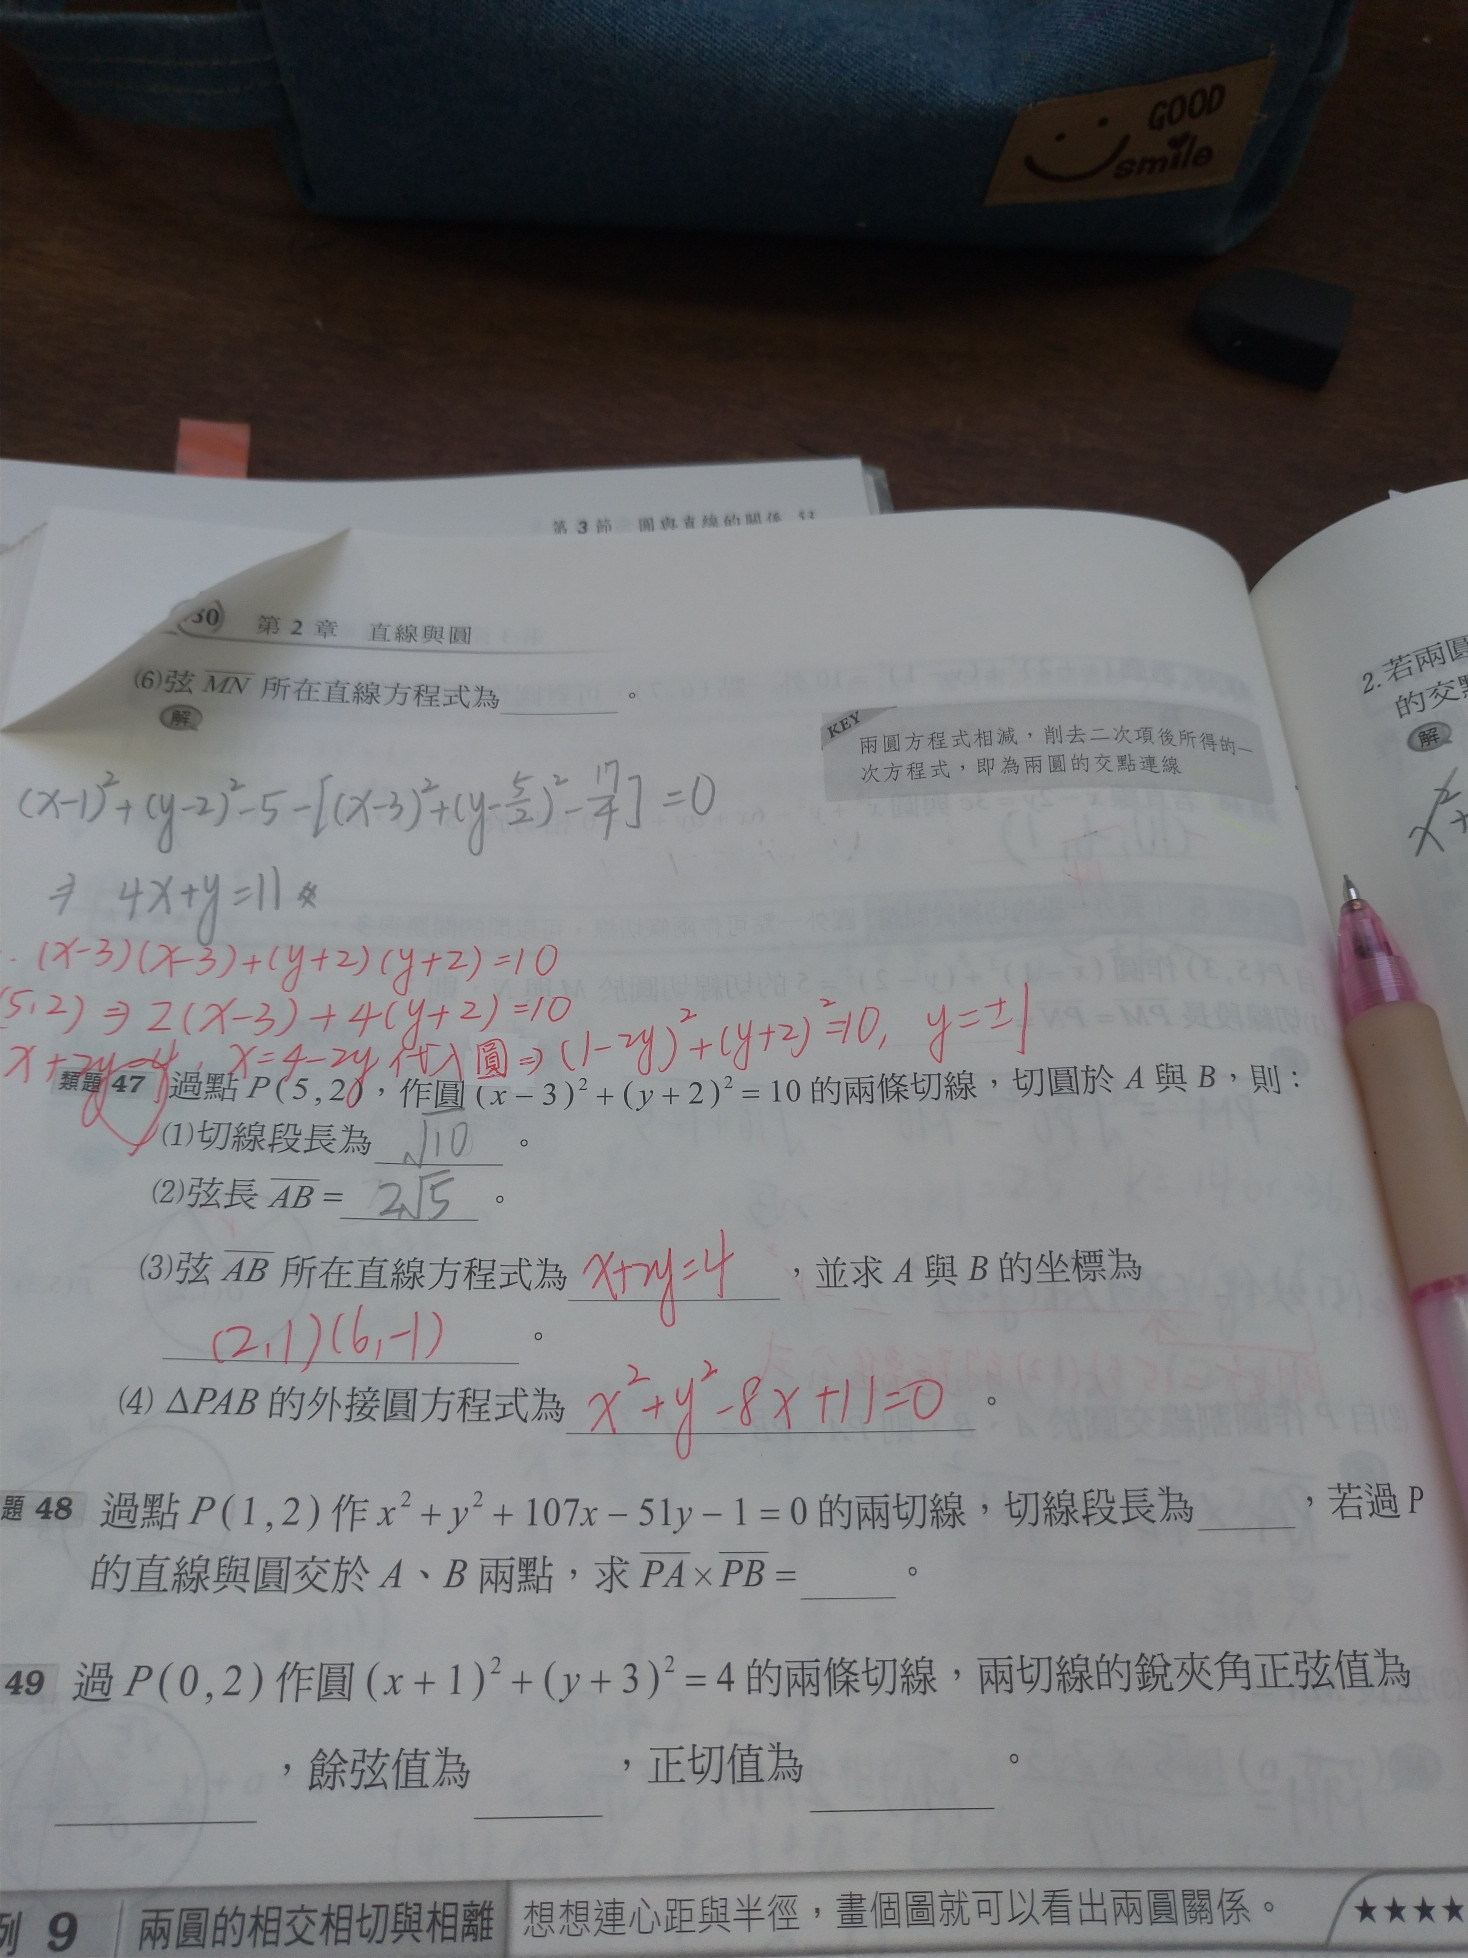 GOOD
smile
第 3 節 圓與直線的關係 53
50 第 2 章 直線與圓
(6)弦 MN 所在直線方程式為______。
解
KEY
兩圓方程式相減，削去二次項後所得的一
次方程式，即為兩圓的交點連線
(x-1)²+(y-2)²-5-[(x-3)²+(y-5/2)²-17/4]=0
⇒ 4x+y=11
(x-3)(x-3)+(y+2)(y+2)=10
(5,2)⇒2(x-3)+4(y+2)=10
x+2y=4, x=4-2y 代入圓⇒(1-2y)²+(y+2)²=10, y=±1
類題 47 過點 P(5,2)，作圓 (x-3)²+(y+2)²=10 的兩條切線，切圓於 A 與 B，則：
(1)切線段長為 √10 。
(2)弦長 AB = 2√5 。
(3)弦 AB 所在直線方程式為 x+2y=4 ，並求 A 與 B 的坐標為
(2,1)(6,-1) 。
(4) ΔPAB 的外接圓方程式為 x²+y²-8x+11=0 。
題 48 過點 P(1,2) 作 x²+y²+107x-51y-1=0 的兩切線，切線段長為______，若過 P
的直線與圓交於 A、B 兩點，求 PA×PB=______。
49 過 P(0,2) 作圓 (x+1)²+(y+3)²=4 的兩條切線，兩切線的銳夾角正弦值為
______，餘弦值為______，正切值為______。
例 9 兩圓的相交相切與相離 想想連心距與半徑，畫個圖就可以看出兩圓關係。 ★★★★
2.若兩圓
的交點
解